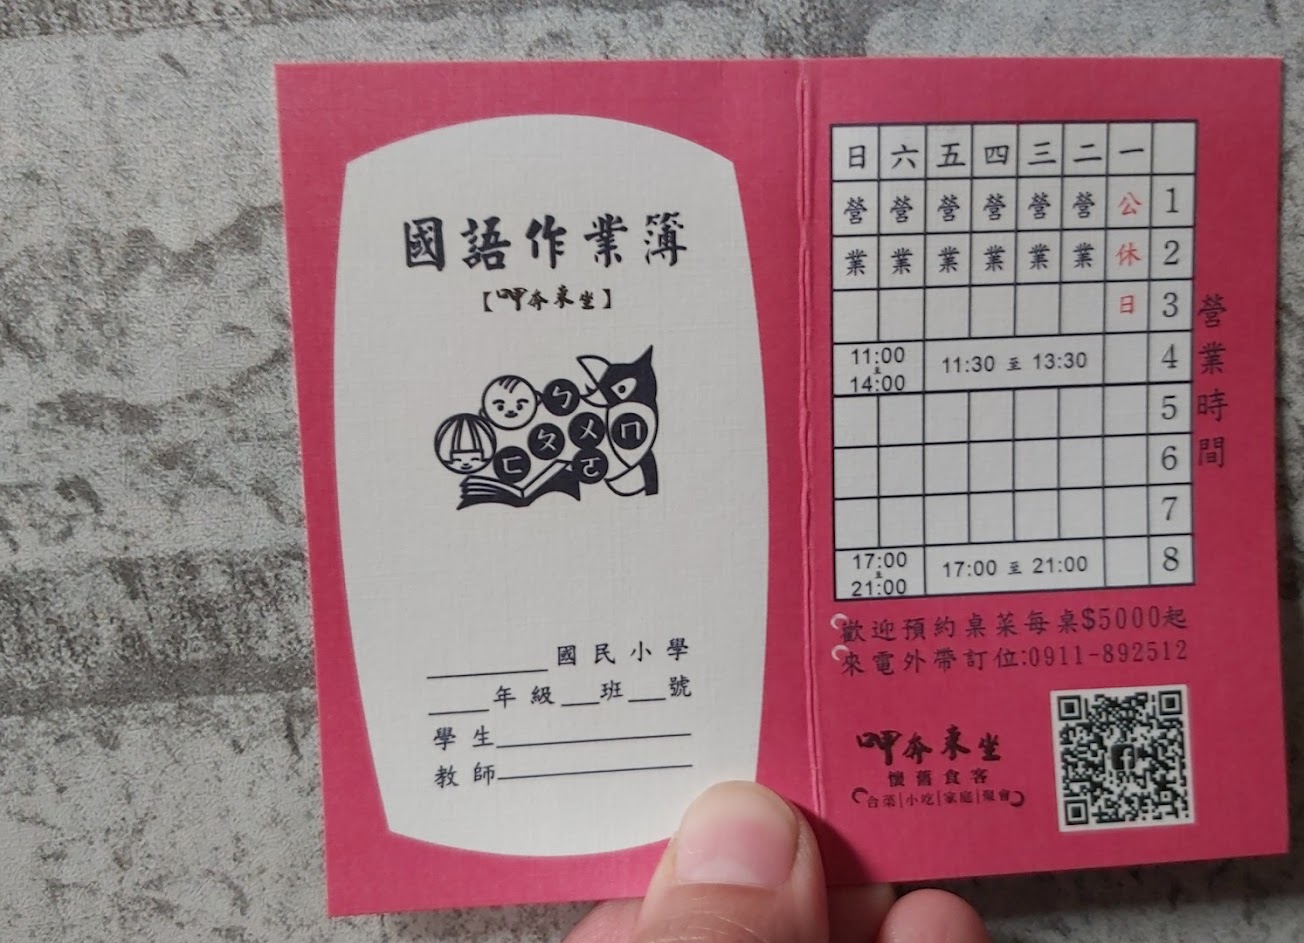 國語作業簿
【呷奔來坐】
ㄅ
ㄆㄨㄇ
ㄈㄛ
______國民小學
____年級__班__號
學生____________
教師____________
日 六 五 四 三 二 一
營 營 營 營 營 營 公 1
業 業 業 業 業 業 休 2
日 3
11:00至14:00 11:30 至 13:30 4
5
6
7
17:00至21:00 17:00 至 21:00 8
營業時間
歡迎預約桌菜每桌$5000起
來電外帶訂位:0911-892512
呷奔來坐
懷舊食客
合菜|小吃|家庭|聚會